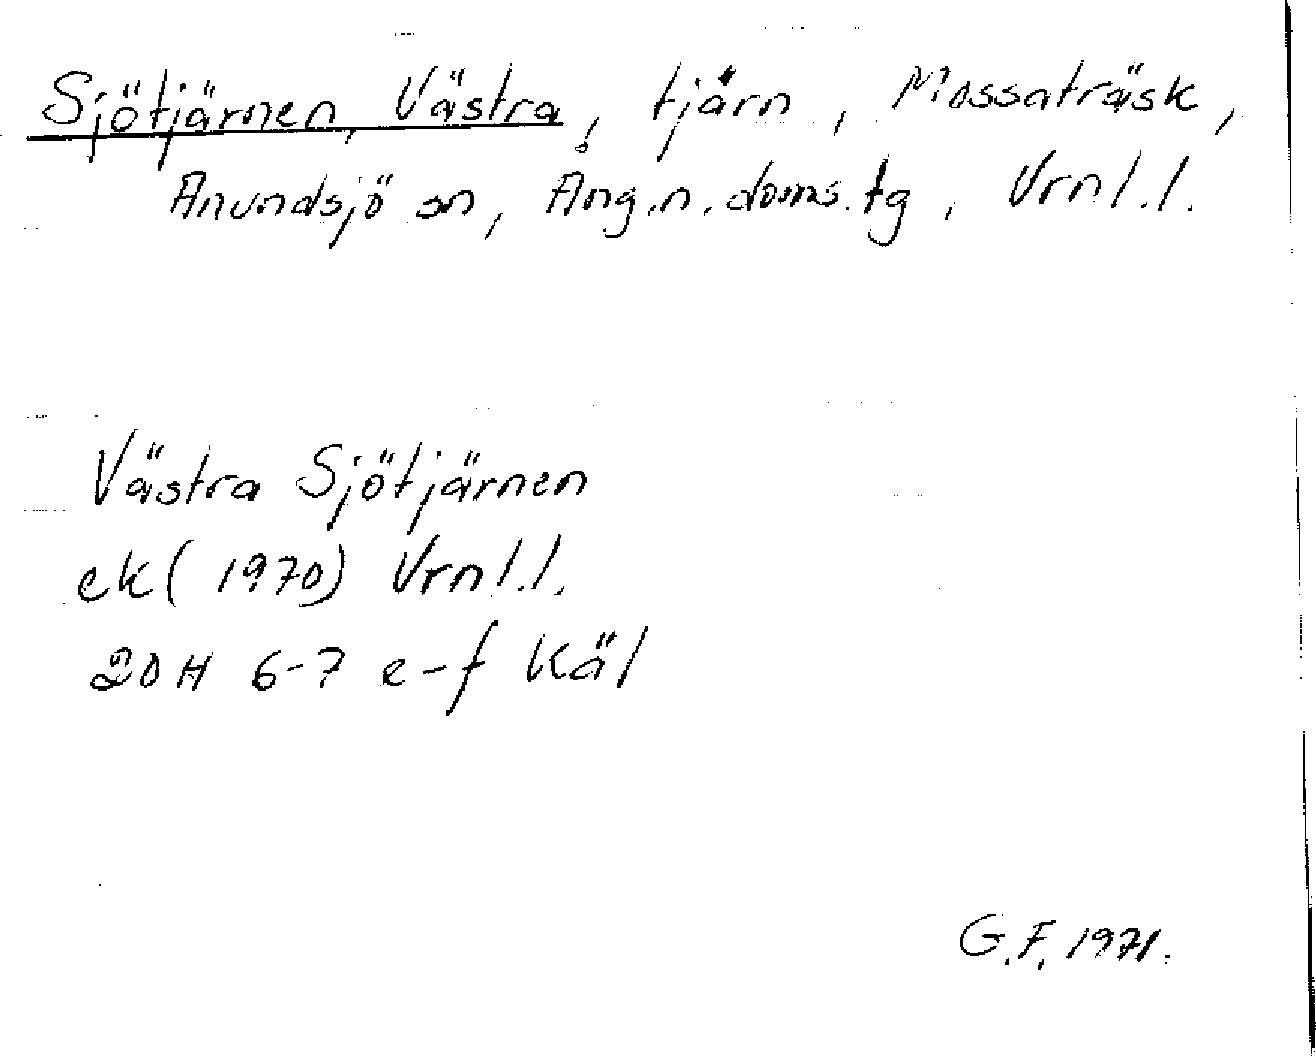 Sjötjärnen, Västra, tjärn, Mossaträsk,
Anundsjö sn, Ång.n.doms.tg, Vrnl.l.
Västra Sjötjärnen
ek(1970) Vrnl.l.
20H 6-7 e-f Käl
G.F. 1971.